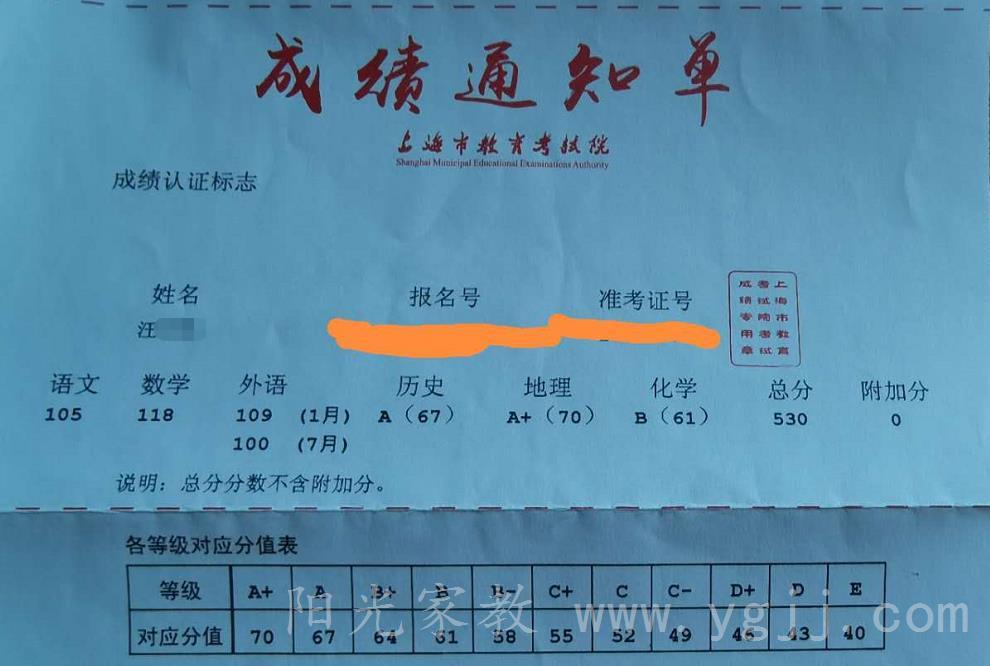 成绩通知单
上海市教育考试院
Shanghai Municipal Educational Examinations Authority
成绩认证标志
姓名 报名号 准考证号
汪
上海市教育考试院考试成绩专用章
语文 数学 外语 历史 地理 化学 总分 附加分
105 118 109 (1月) A（67） A+（70） B（61） 530 0
100 (7月)
说明：总分分数不含附加分。
各等级对应分值表
等级 A+ A B+ B B- C+ C C- D+ D E
对应分值 70 67 64 61 58 55 52 49 46 43 40
阳光家教 www.ygjj.com